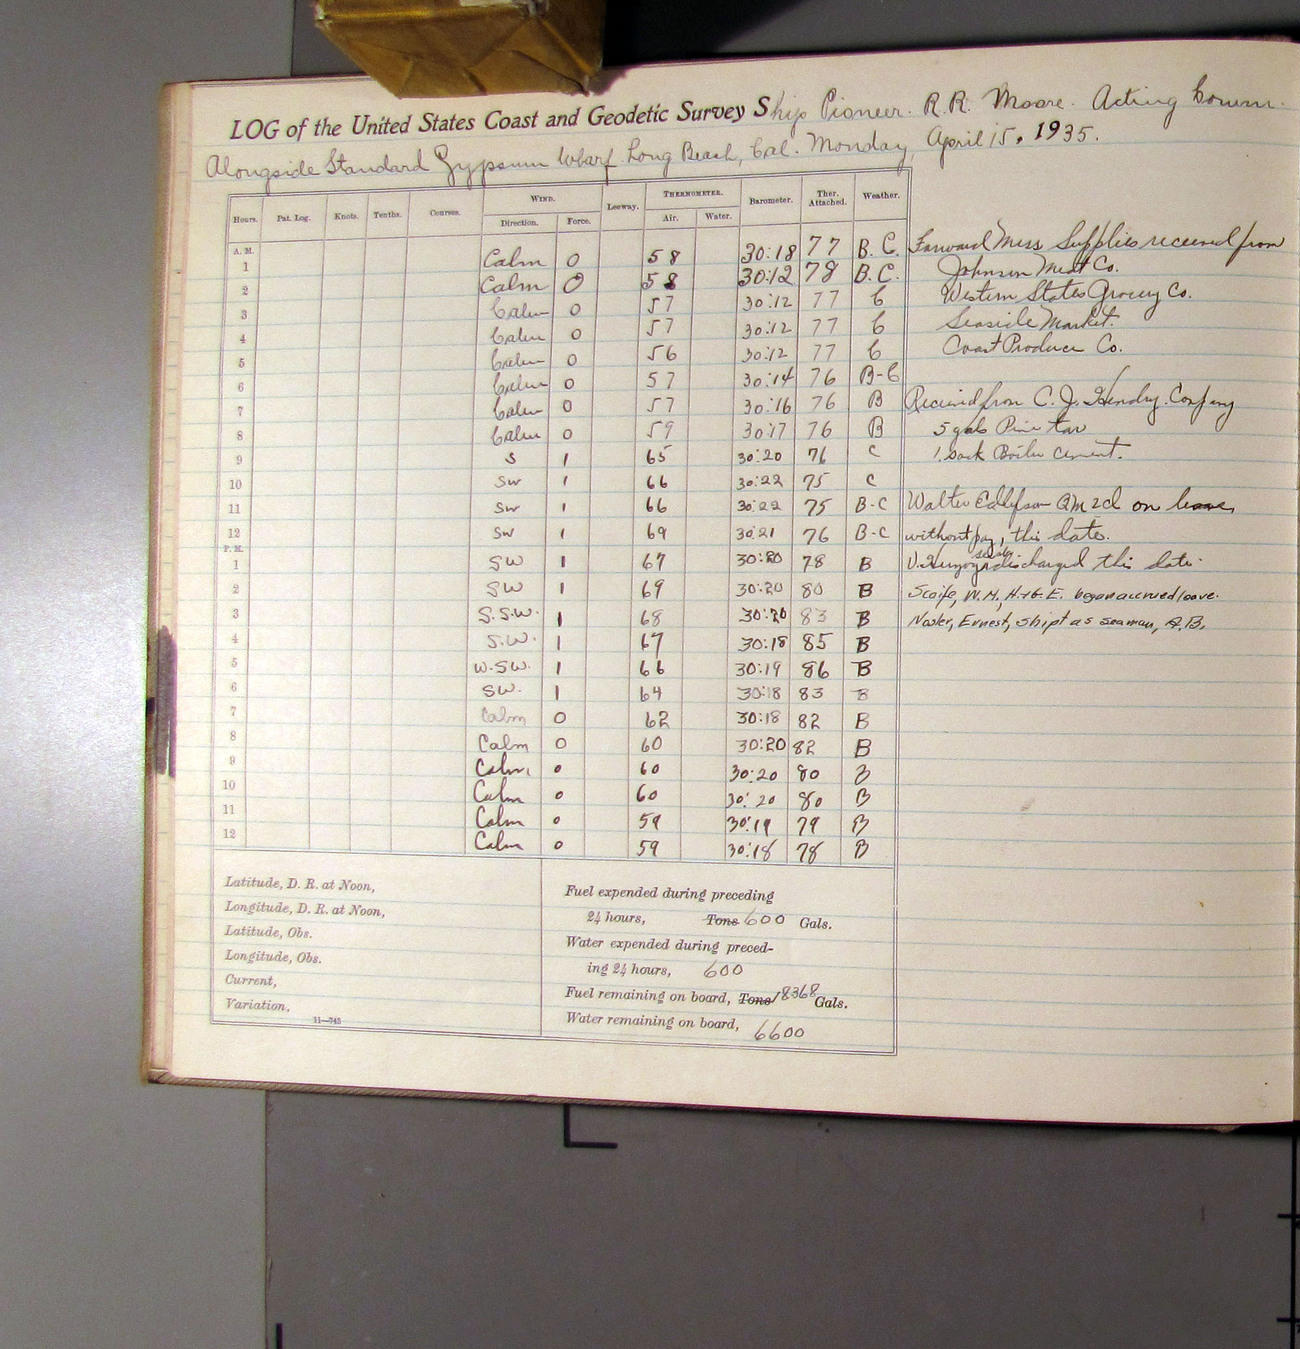 LOG of the United States Coast and Geodetic Survey Ship Pioneer. R.R. Moore. Acting Comm.
Alongside Standard Gypsum Wharf. Long Beach, Cal. Monday, April 15, 1935.
Hours. Pat. Log. Knots. Tenths. Courses. WIND. Leeway. THERMOMETER. Barometer. Ther. Attached. Weather.
Direction. Force. Air. Water.
A. M.
1 Calm 0 58 30:18 77 B.C. Forward Mess Supplies received from
2 Calm 0 58 30:12 78 B.C. Johnson Meat Co.
3 Calm 0 57 30:12 77 C Western States Grocery Co.
4 Calm 0 57 30:12 77 C Seaside Market.
5 Calm 0 56 30:12 77 C Coast Produce Co.
6 Calm 0 57 30:14 76 B-C
7 Calm 0 57 30:16 76 B Received from C. J. Hendry. Company
8 Calm 0 59 30:17 76 B 5 gals Pine tar
9 S 1 65 30:20 76 C 1. sack Boiler cement.
10 SW 1 66 30:22 75 C
11 SW 1 66 30:22 75 B-C Walter QM 2d on leave
12 SW 1 69 30:21 76 B-C without pay, this date.
P. M.
1 SW 1 67 30:20 78 B discharged this date.
2 SW 1 69 30:20 80 B Scaife, W.M., began accrued leave.
3 S.S.W. 1 68 30:20 83 B Nasler, Ernest, shipt as seaman, A.B.
4 S.W. 1 67 30:18 85 B
5 W.SW. 1 66 30:19 86 B
6 SW. 1 64 30:18 83 B
7 Calm 0 62 30:18 82 B
8 Calm 0 60 30:20 82 B
9 Calm 0 60 30:20 80 B
10 Calm 0 60 30:20 80 B
11 Calm 0 59 30:19 79 B
12 Calm 0 59 30:18 78 B
Latitude, D. R. at Noon,
Longitude, D. R. at Noon,
Latitude, Obs.
Longitude, Obs.
Current,
Variation,
11—743
Fuel expended during preceding
24 hours, Tons 600 Gals.
Water expended during preced-
ing 24 hours, 600
Fuel remaining on board, Tons 18368 Gals.
Water remaining on board, 6600